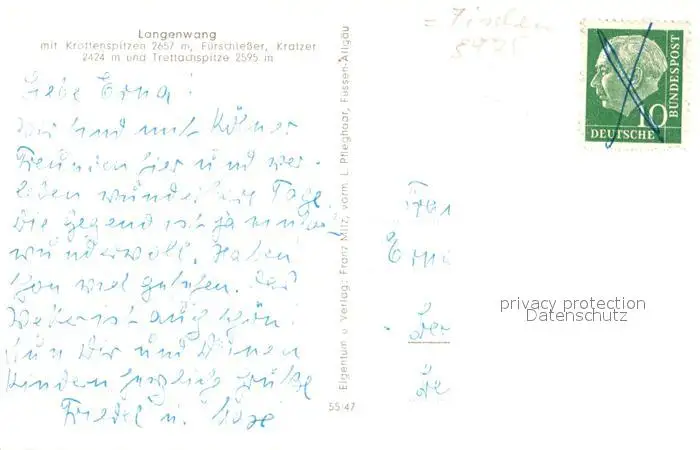 Langenwang
mit Krottenspitzen 2657 m, Fürschießer, Kratzer
2424 m und Trettachspitze 2595 m
Liebe Erna!
Wir sind mit Kölner
Freunden hier und ver-
leben wunderbare Tage.
Die Gegend ist ja
wundervoll. Haben
schon viel gesehen. Das
Wetter ist auch schön.
Nun Dir und Deinen
Kindern herzliche Grüße
Friedel u.
Eigentum u Verlag: Franz Milz, vorm. L. Pfleghaar, Füssen-Allgäu
55/47
= Fischen
DEUTSCHE
BUNDESPOST
10
Frau
Erna
privacy protection
Datenschutz